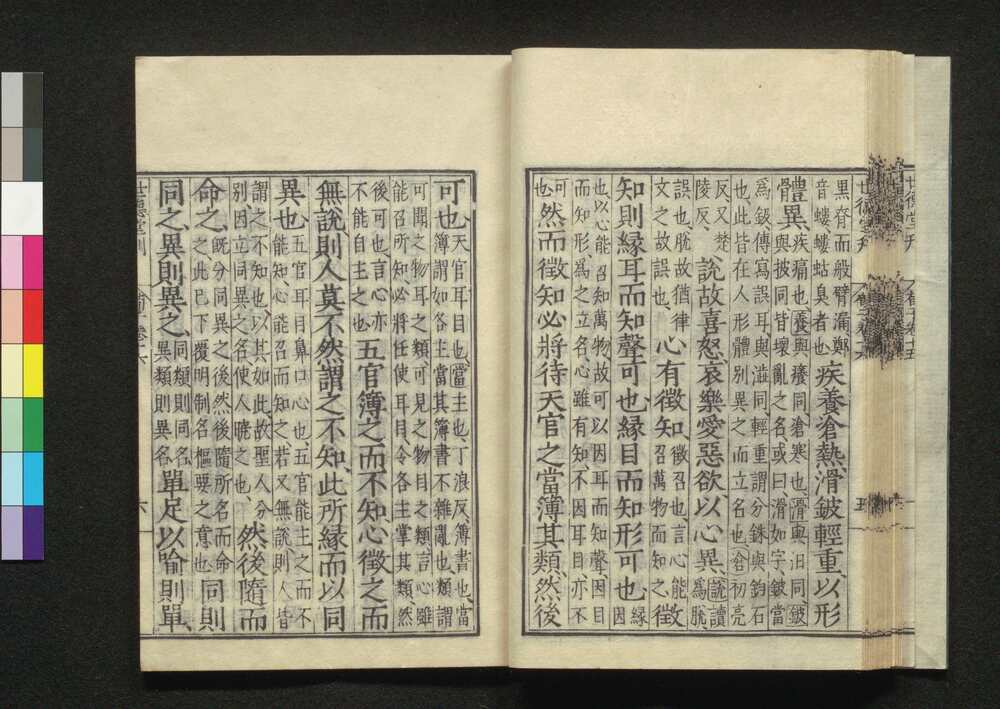 黒脊而般臂漏鄭
音螻螻蛄臭者也
疾養滄熱滑鈹輕重以形
體異
疾痛也養與癢同滄寒也滑與汩同鈹
與披同皆壞亂之名或曰滑如字鈹當
爲鈒傳寫誤耳與澁同輕重謂分銖與鈞石
也此皆在人形體別異之而立名也㑹初亮
反又楚
陵反
說故喜怒哀樂愛惡欲以心異
說讀
爲脫
誤也脫故猶律
文之故誤也
心有徵知
徵召也言心能
召萬物而知之
徵
知則縁耳而知聲可也縁目而知形可也
縁
因
也以心能召知萬物故可以因耳而知聲因目
而知形爲之立名心雖有知不因耳目亦不
可
也
然而徵知必將待天官之當簿其類然後
可也
天官耳目也當主也丁浪反簿書也當
簿謂如各主當其簿書不雜亂也類謂
可聞之物耳之類可見之物目之類言心雖
能召所知必將任使耳目令各主掌其類然
後可也言心亦
不能自主之也
五官簿之而不知心徵之而
無說則人莫不然謂之不知此所縁而以同
異也
五官耳目鼻口心也五官能主之而不
能知心能召而知之若又無說則人皆
謂之不知也以其如此故聖人分
別因立同異之名使人曉之也
然後隨而
命之
旣分同異之後然後隨所名而命
之此已下覆明制名樞要之意也
同則
同之異則異之
同類則同名
異類則異名
單足以喻則單